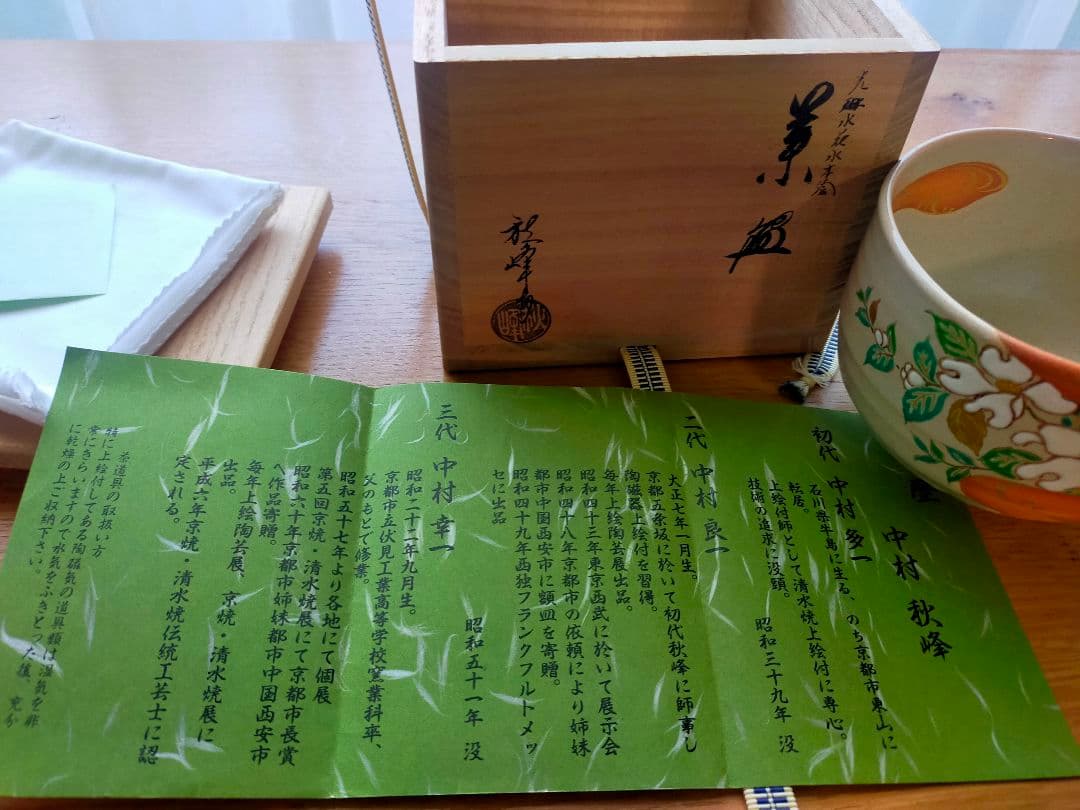 茶盌
秋峰
中村 秋峰
初代 中村 多一
石川県半島に生る、のち京都市東山に
転居。
上絵付師として清水焼上絵付に専心。
技術の追求に没頭。
昭和三十九年 没
二代 中村 良一
大正七年一月生。
京都五条坂に於いて初代秋峰に師事し
陶磁器上絵付を習得。
毎年上絵陶芸展出品。
昭和四十三年東京西武に於いて展示会
昭和四十八年京都市の依頼により姉妹
都市中国西安市に額皿を寄贈。
昭和四十九年西独フランクフルトメッ
セに出品
昭和五十一年 没
三代 中村 幸一
昭和二十二年九月生。
京都市立伏見工業高等学校窯業科卒、
父のもとで修業。
昭和五十七年より各地にて個展
第五回京焼・清水焼展にて京都市長賞
昭和六十年京都市姉妹都市中国西安市
へ作品寄贈。
毎年上絵陶芸展、京焼・清水焼展に
出品。
平成六年京焼・清水焼伝統工芸士に認
定される。
茶道具の取扱い方
特に上絵付してある陶磁気の道具類は湿気を非
常にきらいますので水気をふきとつた後、充分
に乾燥の上ご収納下さい。